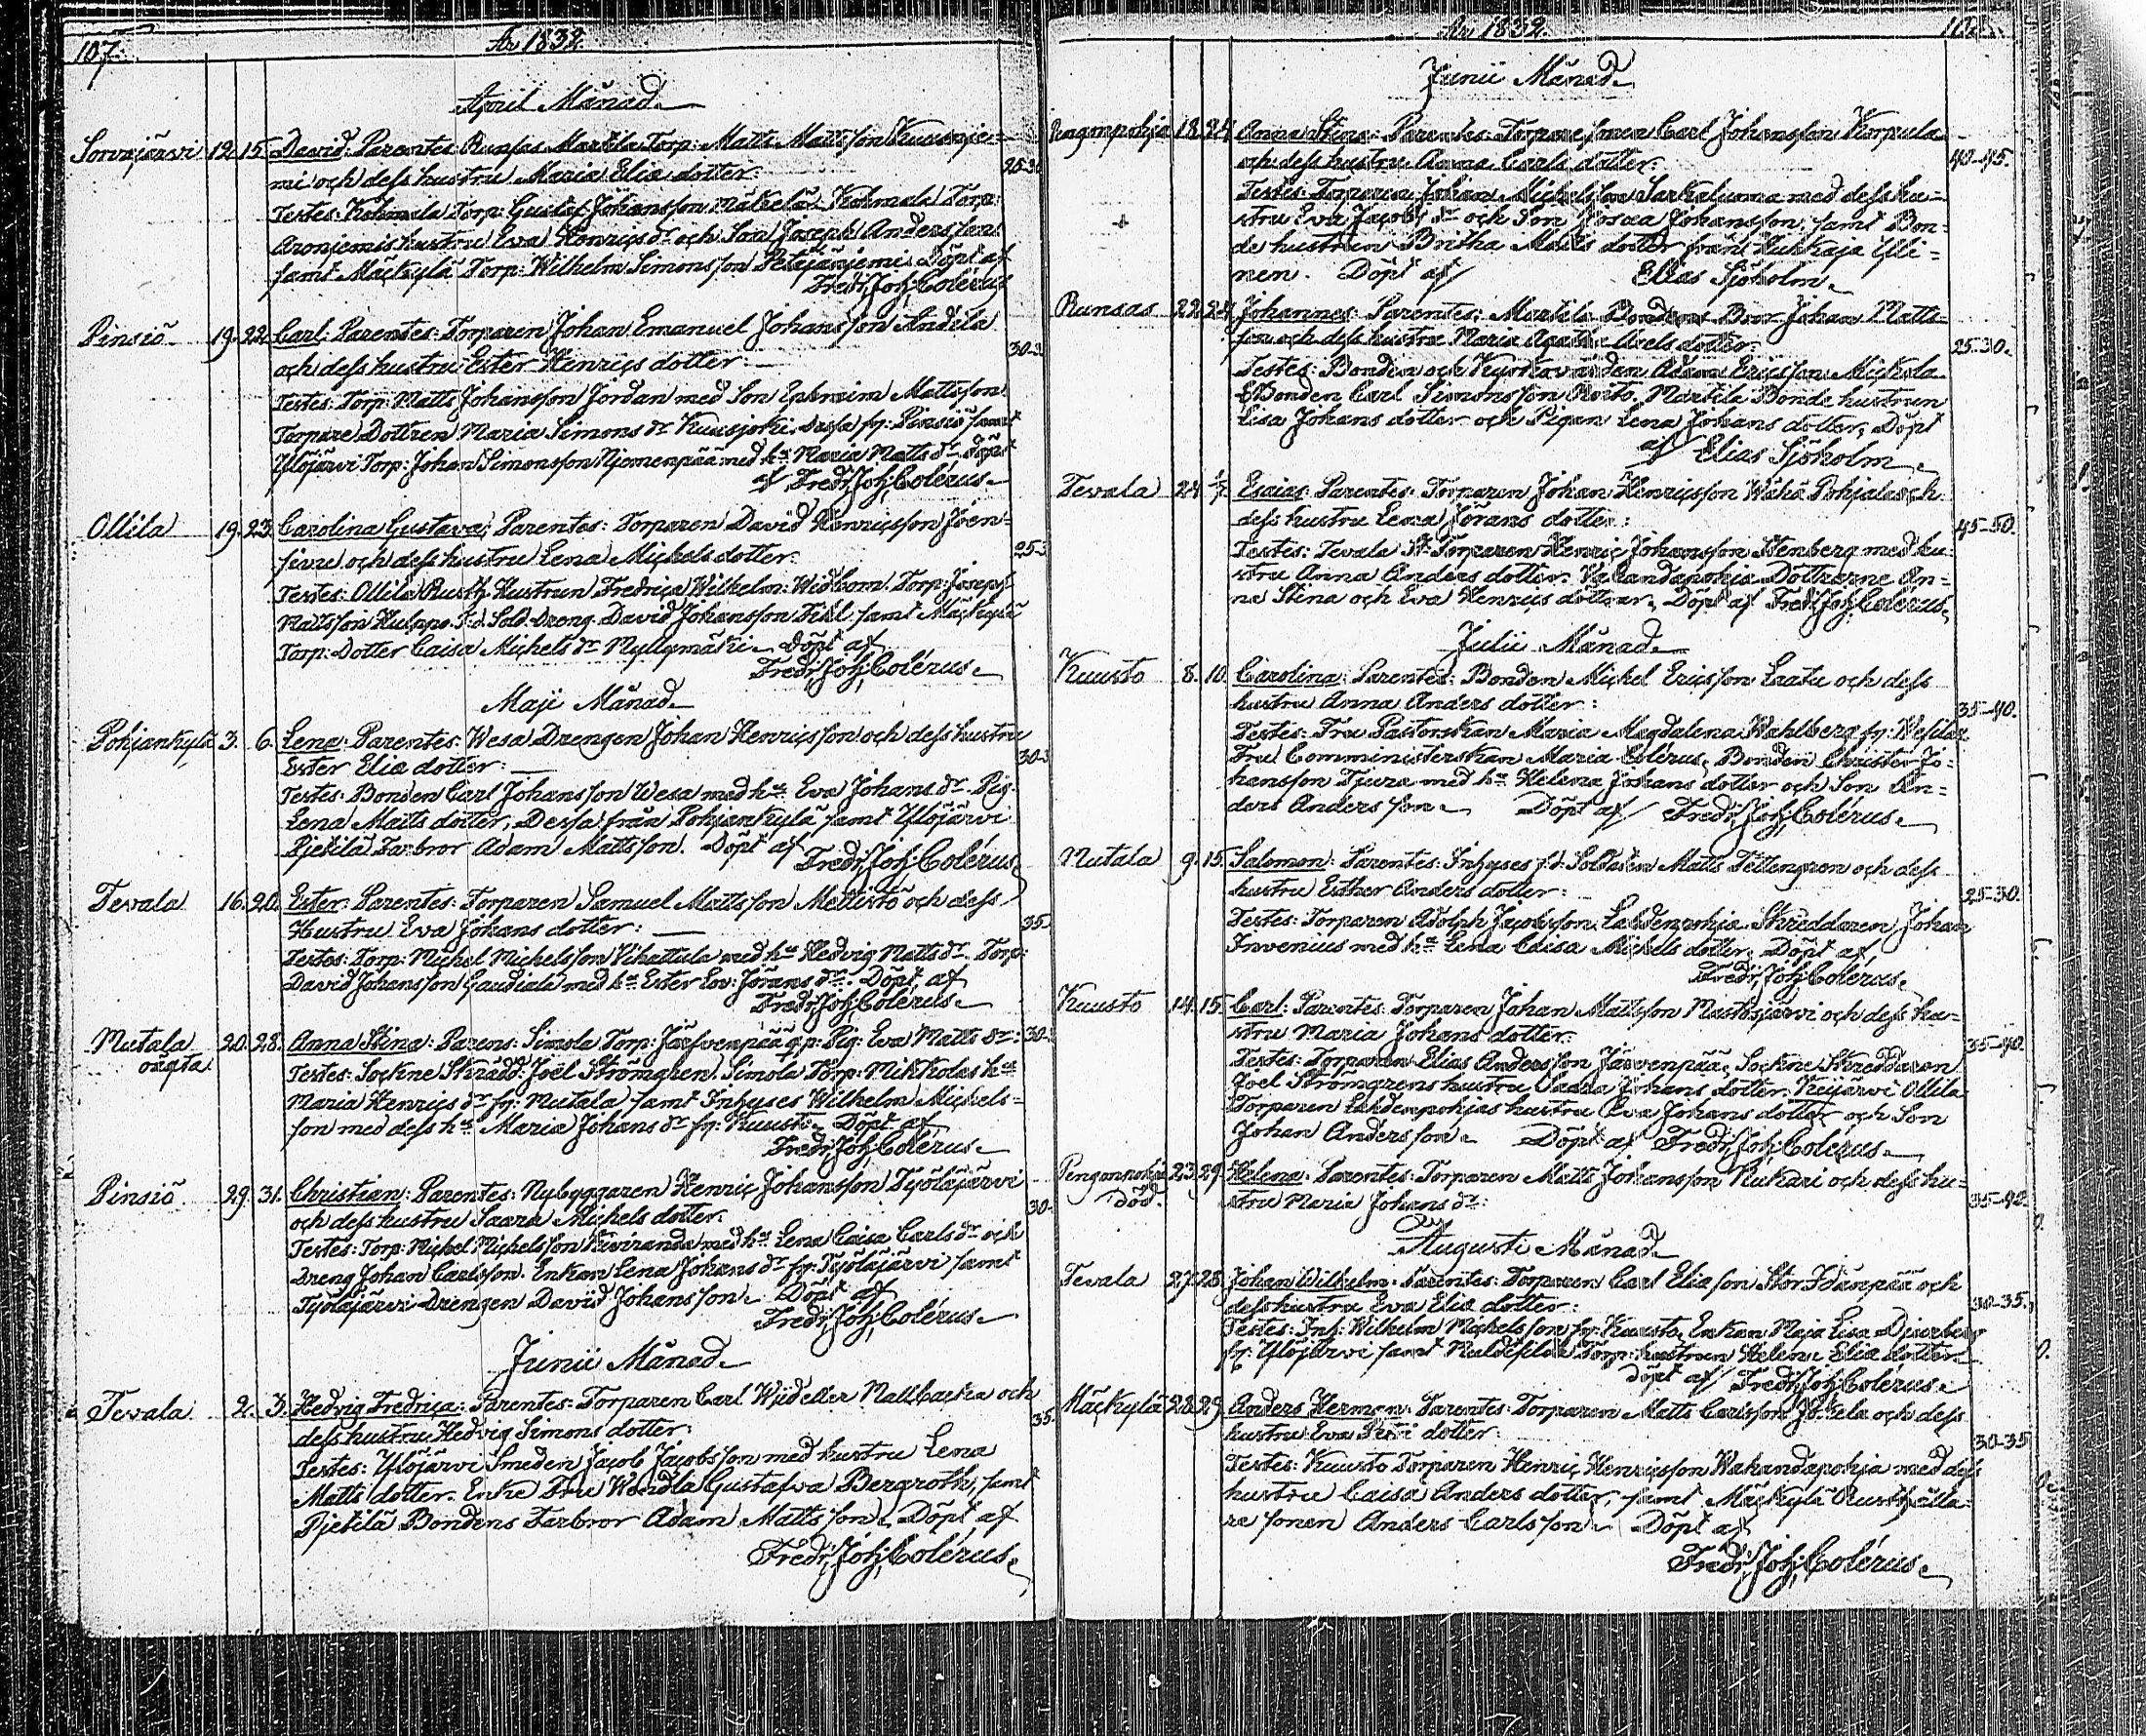 107. År 1832.
April Månad.
Sorvajärvi 12. 15. David: Parentes: Runsas Martila Torp: Matts Mattsson Kuusnie-
mi och dess hustru Maria Elia dotter: 25-30
Testes: Kohmala Torp: Gustaf Johansson Mäkelä. Kohmala Torp:
Aroniemis hustru Eva Henrics dr och Son Joseph Andersson
samt Mäckylä Torp: Wilhelm Simonsson Petäjäniemi. Döpt af
Fredr: Joh: Colérus
Pinsiö 19. 22. Carl: Parentes: Torparen Johan Emanuel Johansson Andéla
och dess hustru Ester Henrics dotter 30-3
Testes: Torp: Matts Johansson Jordan med Son Ephraim Mattsson.
Torpare Dottren Maria Simons dr Kuusjoki, dessa fr: Pinsiö samt
Ylöjärvi Torp: Johan Simonsson Njemenpää med ha Maria Matts dr. Döpt
af Fredr: Joh: Colérus.
Ollila 19. 23. Carolina Gustava: Parentes: Torparen David Henricsson Joen-
sivu och dess hustru Lena Michels dotter: 25-3
Testes: Ollila Rusth: Hustrun Fredrica Wilhelm: Widbom. Torp: Joseph
Mattsson Hulppo. F.d. Sold. Dreng David Johansson Fihl samt Mäckylä
Torp: Dotter Caisa Michels dr Myllymäki. Döpt af
Fredr: Joh: Colérus.
Maji Månad.
Pohjankylä 3. 6. Lena: Parentes: Wesa Drengen Johan Henricsson och dess hustru
Ester Elia dotter: 30-3
Testes: Bonden Carl Johansson Wesa med ha Eva Johans dr. Pig:
Lena Matts dotter, Dessa från Pohjankylä samt Ylöjärvi
Pjetilä Farbror Adam Mattsson. Döpt af Fredr: Joh: Colérus
Tevala 16. 20. Ester: Parentes: Torparen Samuel Mattsson Mettistö och dess
Hustru Eva Johans dotter: 35
Testes: Torp: Michel Michelsson Vihattula med ha Hedvig Matts dr. Torp:
David Johansson Gaudiala med ha Ester Lov: Jörans dr. Döpt af
Fredr: Joh: Colérus.
Mutala 20. 28. Anna Stina: Parens: Simola Torp: Järfvenpää qp: Pig: Eva Matts dr: 30-
oägta. Testes: Sockne Skrädd: Joel Strömgren. Simola Torp: Mikkolas ha
Maria Henrics dr fr: Mutala samt Inhyses Wilhelm Michels-
son med dess ha Maria Johans dr fr: Kuusto. Döpt af
Fredr: Joh: Colérus.
Pinsiö. 29. 31. Christian: Parentes: Nybyggaren Henric Johansson Työläjärvi
och dess hustru Saara Michels dotter: 30-
Testes: Torp: Michel Michelsson Kiviranda med ha Lena Caisa Carls dr och
Dreng Johan Carlsson. Enkan Lena Johans dr fr: Työläjärvi samt
Työläjärvi Drengen David Johansson. Döpt af
Fredr: Joh: Colérus.
Junii Månad.
Tevala. 2. 3. Hedvig Fredrica: Parentes: Torparen Carl Wideller Mallbacka och
dess hustru Hedvig Simons dotter: 35
Testes: Ylöjärvi Smeden Jacob Jacobsson med hustru Lena
Matts dotter. Enke Fru Wendla Gustafva Bergroth, samt
Pjetilä Bondens Farbror Adam Mattsson. Döpt af
Fredr: Joh: Colérus.
År 1832. 108.
Junii Månad
Pengonpohja 18. 24. Anna Stina: Parentes: Torparesonen Carl Johansson Korpula
och dess hustru Anna Carls dotter: 40-45.
Testes: Torparen Johan Michelsson Sarkaluoma med dess hu-
stru Eva Jacobs dr och Son Josua Johansson samt Bon-
de hustrun Britha Matts dotter från Kukkaja Yli-
nen. Döpt af Elias Sjöholm.
Runsas 22. 24. Johannes: Parentes: Martila Bondens Bror Johan Matts-
son och dess hustru Maria Agatha Axels dotter: 25-30.
Testes: Bonden och Kyrkovärden Adam Ericsson Mickola
Bonden Carl Simonsson Roito. Martila Bonde hustrun
Lisa Johans dotter och Pigan Lena Johans dotter. Döpt
af Elias Sjöholm.
Tevala 24. 1/7. Esaias: Parentes: Torparen Johan Henricsson Wähä Pohjala och
dess hustru Lena Jörans dotter: 45-50.
Testes: Tevala Torparen Henric Johansson Stenberg med hu-
stru Anna Anders dotter. Vahandapohja Döttrarne An-
na Stina och Eva Henrics döttrar. Döpt af Fredr: Joh: Colérus.
Julii Månad.
Kuusto 8. 10. Carolina: Parentes: Bonden Michel Ericsson Laatu och dess
hustru Anna Anders dotter: 35-40.
Testes: Fru Pastorskan Maria Magdalena Wahlberg fr: Wesilax
Fru Comministerskan Maria Colérus, Bonden Christer Jo-
hansson Tjura med ha Helena Johans dotter och Son An-
ders Andersson. Döpt af Fredr: Joh: Colérus.
Mutala 9. 15. Salomon: Parentes: Inhyses f.d: Soldaten Matts Tettengren och dess
hustru Esther Anders dotter: 25-30.
Testes: Torparen Adolph Jacobsson Lahdenpohja Skräddaren Johan
Invenius med ha Lena Caisa Michels dotter. Döpt af
Fredr: Joh: Colérus.
Kuusto 14. 15. Carl: Parentes: Torparen Johan Mattsson Mastosjärvi och dess hu-
stru Maria Johans dotter: 35-40.
Testes: Torparen Elias Andersson Järvenpää. Sockne Skreddaren
Joel Strömgrens hustru Saara Johans dotter. Keijärvi Ollila
Torparen Lahdenpohjas hustru Eva Johans dotter och Son
Johan Andersson. Döpt af Fredr: Joh: Colérus.
Pengonpohja 23. 29. Helena: Parentes: Torparen Matts Johansson Kukari och dess hu-
död. stru Maria Johans dr: 35-40.
Augusti Månad
Tevala 27. 28. Johan Wilhelm: Parentes: Torparen Carl Eliasson Stor Idänpää och
dess hustru Eva Elia dotter: 30-35.
Testes: Inh: Wilhelm Michelsson fr: Kuusto, Enkan Maja Lisa
fr: Ylöjärvi samt Torp: hustrun Helena Elia dotter.
Döpt af Fredr: Joh: Colérus.
Mäckylä 28. 29. Anders Herman: Parentes: Torparen Matts Carlsson och dess
hustru Eva dotter: 30-35
Testes: Kuusto Torparen Henric Henricsson Wahandapohja med dess
hustru Caisa Anders dotter, samt Mäckylä Rusthålla-
re sonen Anders Carlsson. Döpt af
Fredr: Joh: Colérus.